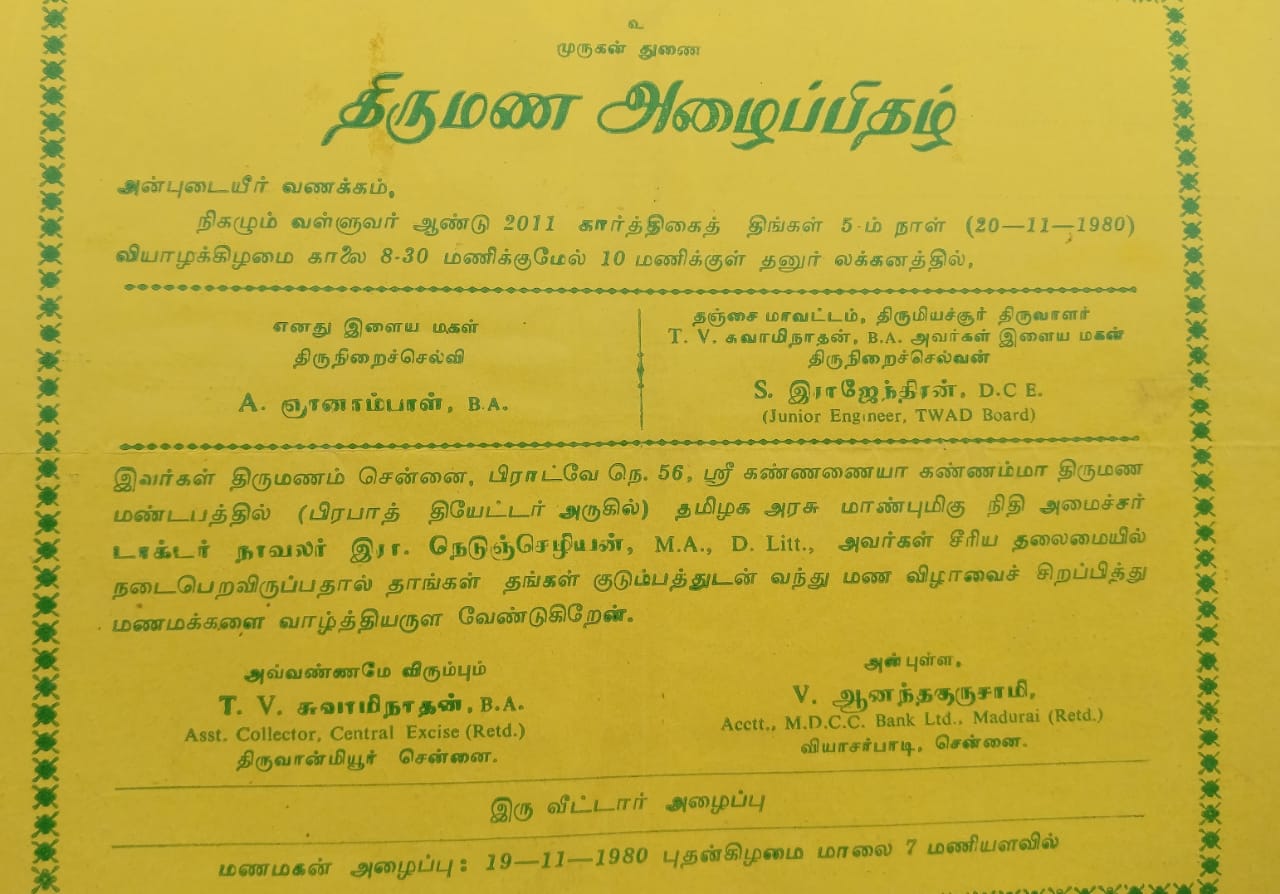 உ
முருகன் துணை
திருமண அழைப்பிதழ்
அன்புடையீர் வணக்கம்,
நிகழும் வள்ளுவர் ஆண்டு 2011 கார்த்திகைத் திங்கள் 5-ம் நாள் (20—11—1980)
வியாழக்கிழமை காலை 8-30 மணிக்குமேல் 10 மணிக்குள் தனுர் லக்கனத்தில்,
எனது இளைய மகள்
திருநிறைச்செல்வி
A. ஞானாம்பாள், B.A.
தஞ்சை மாவட்டம், திருமியச்சூர் திருவாளர்
T. V. சுவாமிநாதன், B.A. அவர்கள் இளைய மகன்
திருநிறைச்செல்வன்
S. இராஜேந்திரன், D.C E.
(Junior Engineer, TWAD Board)
இவர்கள் திருமணம் சென்னை, பிராட்வே நெ. 56, ஸ்ரீ கண்ணணையா கண்ணம்மா திருமண
மண்டபத்தில் (பிரபாத் தியேட்டர் அருகில்) தமிழக அரசு மாண்புமிகு நிதி அமைச்சர்
டாக்டர் நாவலர் இரா. நெடுஞ்செழியன், M.A., D. Litt., அவர்கள் சீரிய தலைமையில்
நடைபெறவிருப்பதால் தாங்கள் தங்கள் குடும்பத்துடன் வந்து மண விழாவைச் சிறப்பித்து
மணமக்களை வாழ்த்தியருள வேண்டுகிறேன்.
அவ்வண்ணமே விரும்பும்
T. V. சுவாமிநாதன், B.A.
Asst. Collector, Central Excise (Retd.)
திருவான்மியூர் சென்னை.
அன்புள்ள,
V. ஆனந்தகுருசாமி,
Acctt., M.D.C.C. Bank Ltd., Madurai (Retd.)
வியாசர்பாடி, சென்னை.
இரு வீட்டார் அழைப்பு
மணமகன் அழைப்பு : 19—11—1980 புதன்கிழமை மாலை 7 மணியளவில்